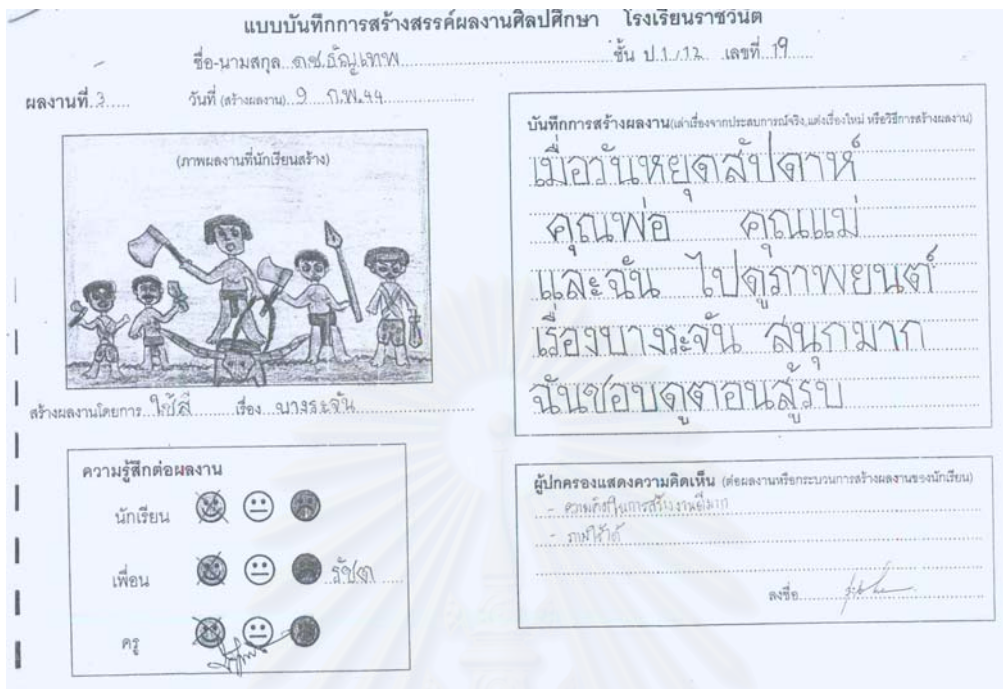 แบบบันทึกการสร้างสรรค์ผลงานศิลปศึกษา โรงเรียนราชวินิต
ชื่อ-นามสกุล ดช.ธัญเทพ ชั้น ป.1/12 เลขที่ 19
ผลงานที่ 3 วันที่ (สร้างผลงาน) 9 ก.พ.44
(ภาพผลงานที่นักเรียนสร้าง)
สร้างผลงานโดยการ ใช้สี เรื่อง บางระจัน
บันทึกการสร้างผลงาน(เล่าเรื่องจากประสบการณ์จริง,แต่งเรื่องใหม่ หรือวิธีการสร้างผลงาน)
เมื่อวันหยุดสัปดาห์
คุณพ่อ คุณแม่
และฉัน ไปดูภาพยนต์
เรื่องบางระจัน สนุกมาก
ฉันชอบดูตอนสู้รบ
ความรู้สึกต่อผลงาน
นักเรียน
เพื่อน รัชต
ครู
ผู้ปกครองแสดงความคิดเห็น (ต่อผลงานหรือกระบวนการสร้างผลงานของนักเรียน)
- ในการสร้างงานดีมาก
- ภาพใช้ได้
ลงชื่อ